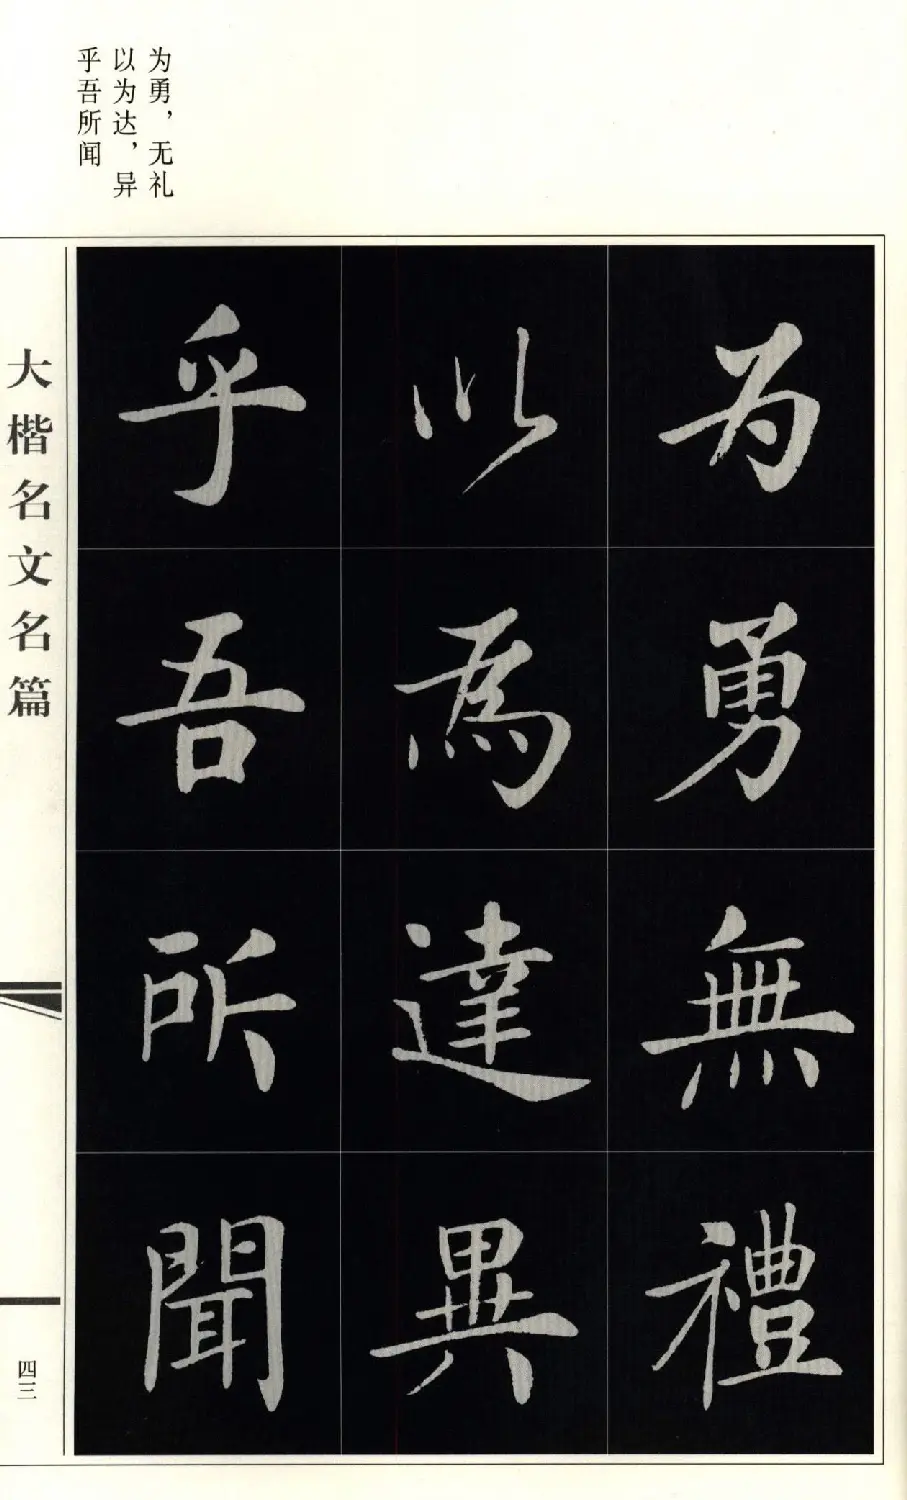 为勇，无礼
以为达，异
乎吾所闻
为勇無禮
以為達異
乎吾所聞
大楷名文名篇
四三